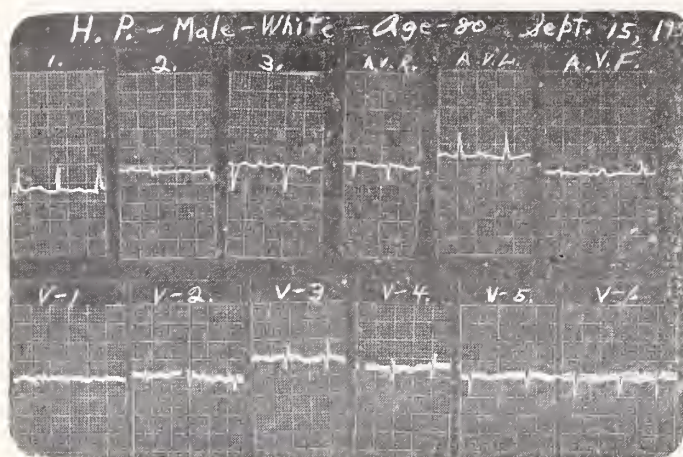 H. P. - Male - White - Age - 80 Sept. 15, 19
1. 2. 3. A.V.R. A.V.L. A.V.F.
V-1 V-2. V-3 V-4. V-5. V-6